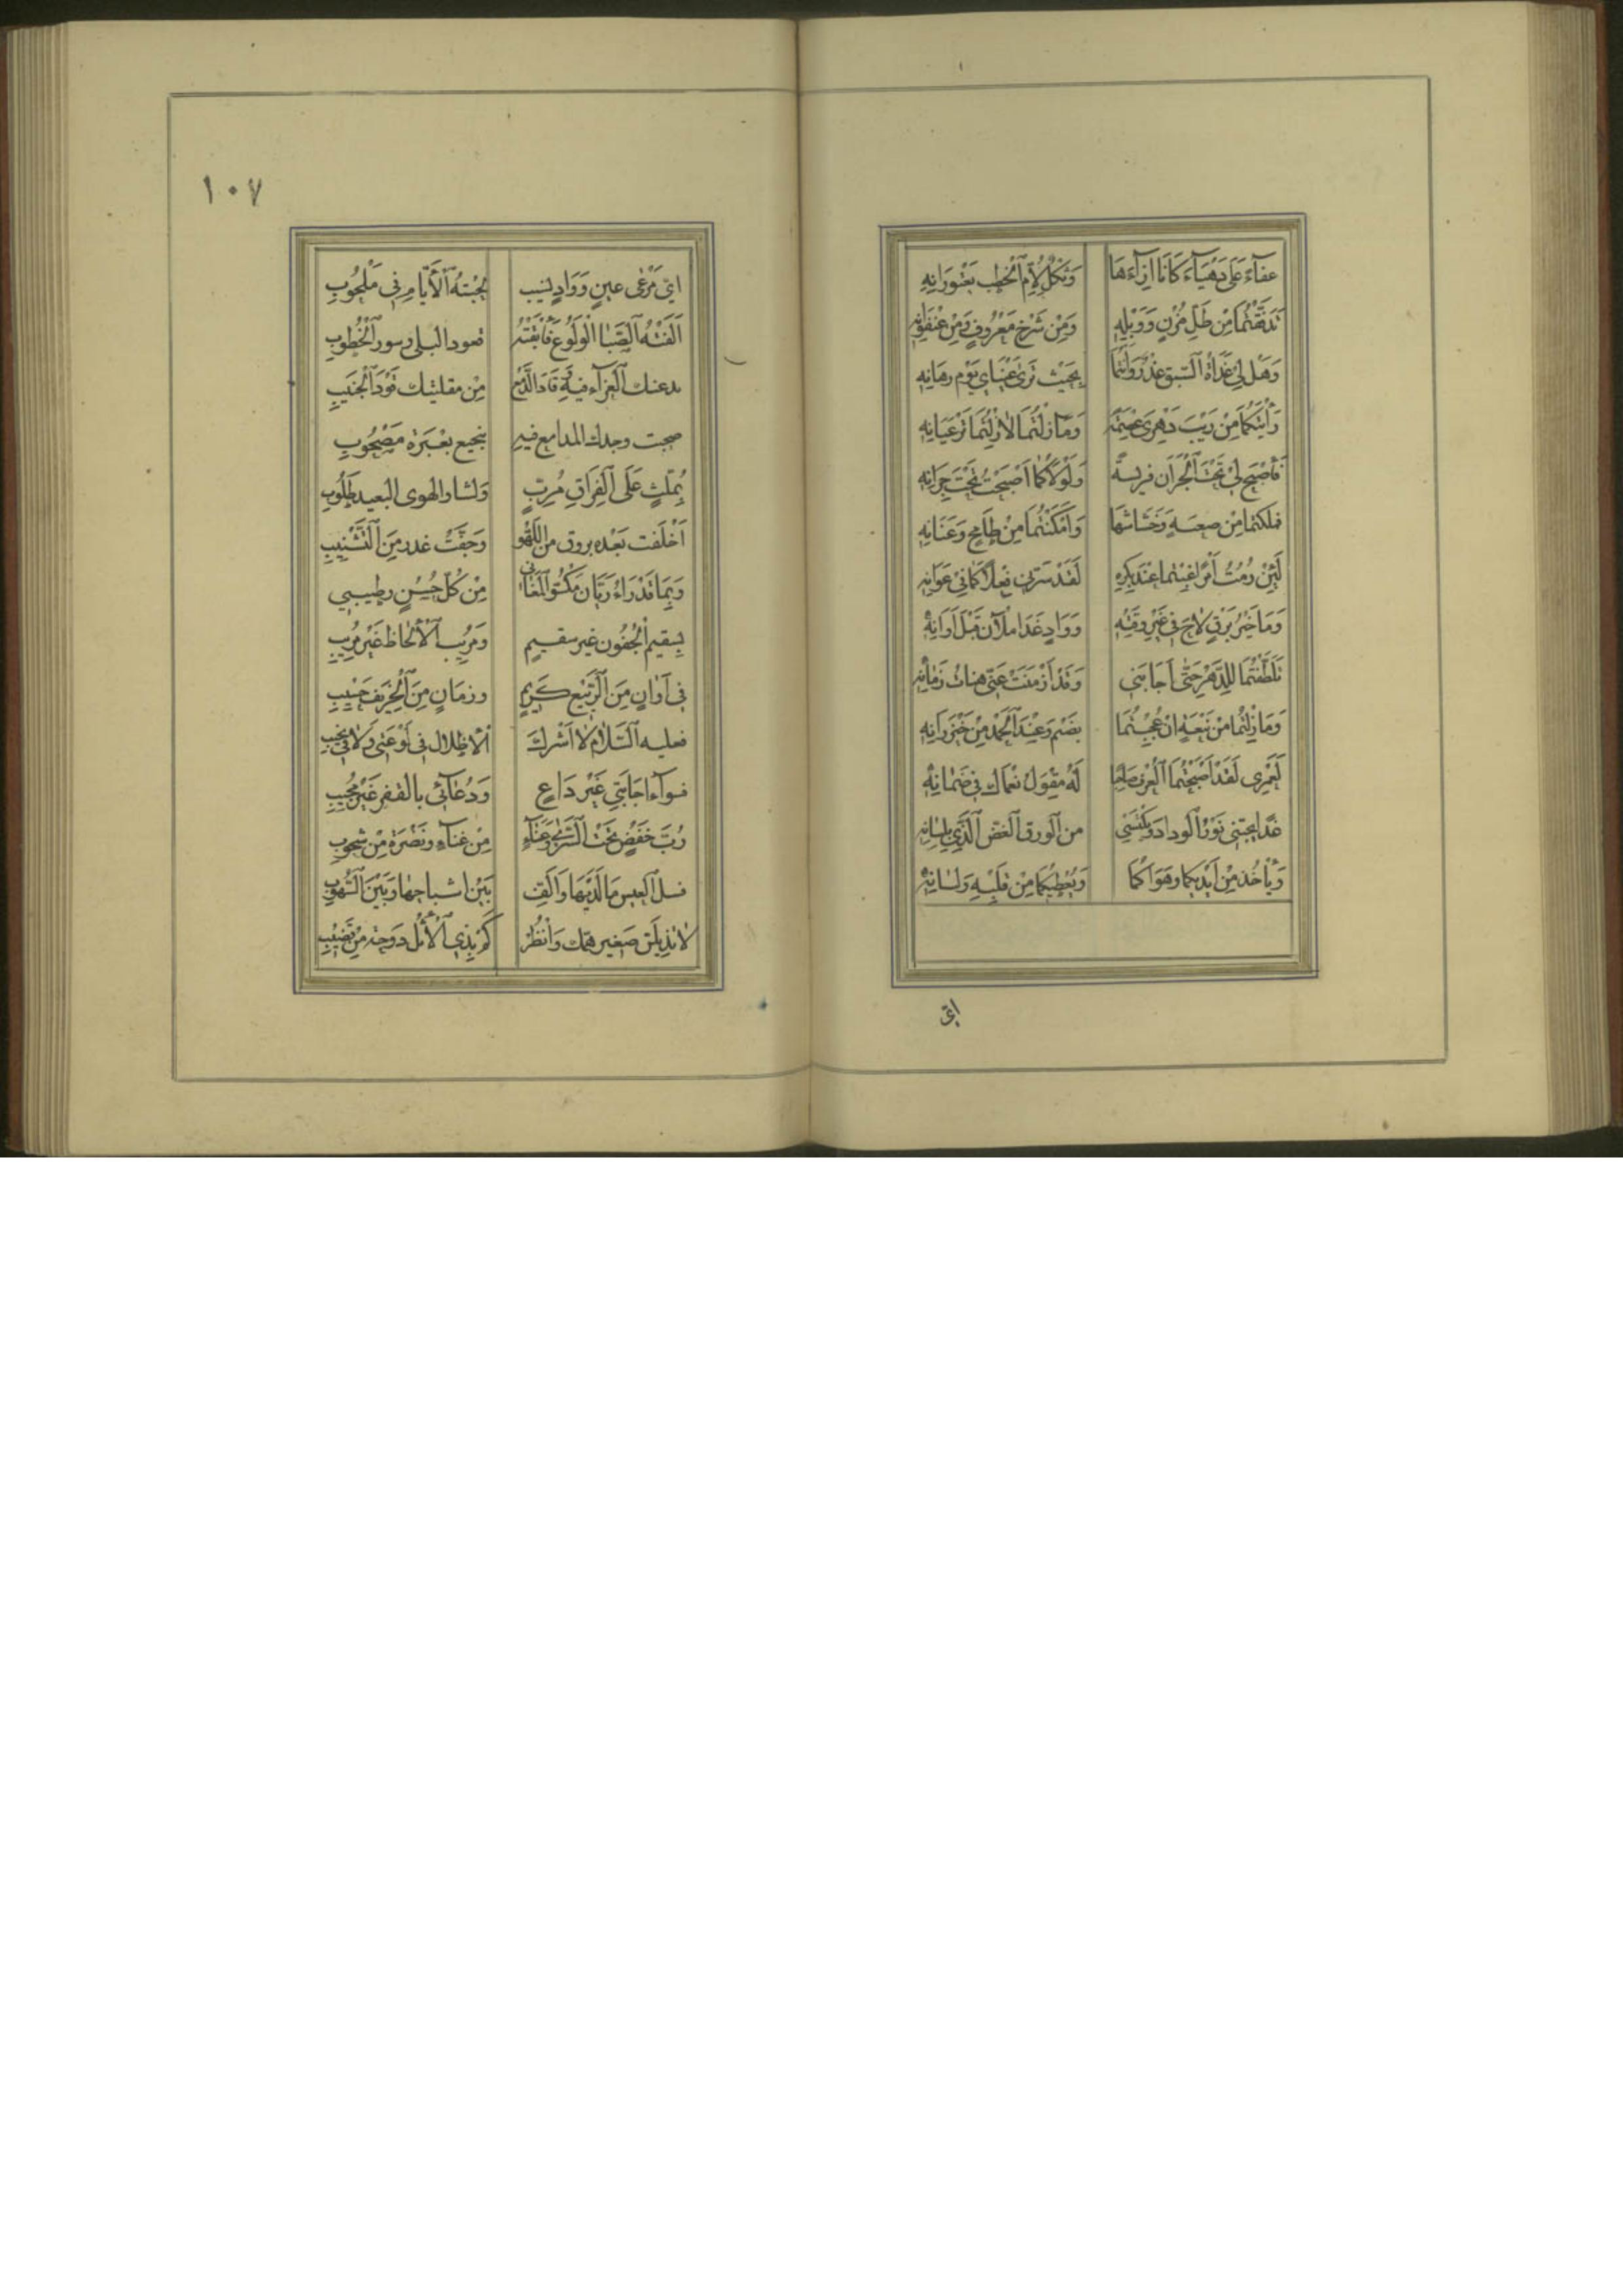 عفآءً عَلى دَهْيَآءَ كَانَا اِزآءَهَا وَثكلٌ لِأُمِّ ٱلخطب يَعْتورَانِهِ
تَدَفَّقْتُمَا مِنْ طَلِّ مُزْنٍ وَوَبْلِهِ وَمِنْ شَرْخِ مَعْرُوفٍ وَمِنْ عُنْفُوَانِهِ
وَهَلْ لِي غَدَاةَ ٱلسَّبقِ عُذْرٌ وَاَنْتُما بِحَيْث تَرىٰ عَيْنَاي يَوْم رِهَانِهِ
رَأَيْتُكُمَا مِنْ رَيْبَ دَهْرِي وَمَا زِلْتُمَا لَا زِلْتُمَا تَرْعَيَانِهِ
فَاَصْبَح لي تَحْتَ ٱلجِرَانِ فريسةً وَلَوْلَاكُمَا اَصْبَحْتُ تَحْتَ جِرَانِهِ
مَلكتما مِنْ صعبَهِ وَخَشَاشَها وَاَمْكَنْتُمَا مِنْ طَامِحٍ وَعَنَانِهِ
لَئِنْ رُمْتُ اَمْراً غِبْتُما عِنْدَ بِكْرِهِ لَقَدْ سَرَّنِي فِعْلاكُمَا فِي عَوَانِهِ
وَمَا خَيْرُ بَرْقٍ لَاحَ في غَيْرِ وَقْتِهِ وَوَادٍ غَدَا ملآنَ قَبْلَ اَوَانِهِ
تَلَطَّفْتُمَا لِلدَّهْرِ حَتَّى اَجَابَنِي وَقَدْ اَزْمَنَتْ عَنِّي هناتُ زَمَانِهِ
وَمَا زِلْتُمَا مِنْ نَبْعَهِ اِنْ عُجِمْتُمَا بِضَيْمٍ وَعِنْدَ ٱلحَمْدِ مِنْ خَيْزَرَانِهِ
لَعَمْرِي لَقَدْ اَصْبَحْتُمَا ٱلعُرْفَ صَاحِبًا لَهُ مِقْوَلٌ نُعْمَاكَ في ضَمَانِهِ
غَدَا يَجْتَنِي نَوْرَ ٱلودادِ وَيَكْتَسِي من ٱلورق ٱلغضّ ٱلَّذِي
وَيَأْخُذُ مِنْ اَيْدِيكُمَا وَهَوَاكُمَا وَيُعْطِيكُمَا مِنْ قَلْبِهِ وَلِسَانِهِ
اي
١٠٧
ايّ مَرْعَى عينٍ وَوَادِي نسيب لحَبَتْهُ ٱلْاَيَّامِ فِي مَلْحُوبِ
اَلفَتْهُ ٱلصَّبا الْوَلُوع فَاَبْقَتْهُ قعود البلى وسور ٱلْخُطوبِ
ند عنك ٱلعَزَآء فيه وَقَادَ الدَّمْع مِنْ مقلتيك قَوْدَ ٱلجَنِيبِ
صحبت وجدك المدامع فيهِ بنجيع بعَبْرَةٍ مَصْحُوبِ
بِمُلِثٍّ عَلَى ٱلفِرَاقِ مُرِبٍّ وَلشاو الهوى البعيد طَلُوبِ
اَخْلَفت بَعْده بروق من اللَّهْو وَجَفَّتْ غدر مِنَ ٱلتَّشْبِيبِ
وَبِمَا قَدْ رَاءُ رَيَّانَ مَكْسُوّ المَغَانِي مِنْ كُلِّ حُسْنٍ وطِيبِي
بِسقيم ٱلْجُفُون غير سقيمٍ وَمُرِيب ٱلْاَلْحَاظ غَيْر مُرِيبِ
فِي اَوَانٍ مِنَ ٱلرَّبيعِ كَرِيمٍ وزمَانٍ مِنَ ٱلخَرِيف حَسِيبِ
فعليه ٱلسَّلَام لا اَشْرك ٱلاطلال في لَوْعَتي وَلَا في نَحِيبِ
فسوآء اجَابَتِي غَيْر دَاعٍ وَدُعَآئِي بالقفر غَيْر مُجِيبِ
رُبَّ خَفْضٍ تَحْتَ ٱلسُّرَى وَغَنَآءٍ مِنْ عَنآءٍ ونَضْرَةٍ مِنْ شُحوبِ
فسل ٱلعيس مَا لَدَيْهَا وَاَلِّف بَيْنَ اشباحها وَبَيْنَ السُّهُوبِ
لا تذيلَن صَغير همّك وَانْظُرْ كَمْ بِذِي ٱلْاَثْل دَوحة مِنْ قَضِيبِ